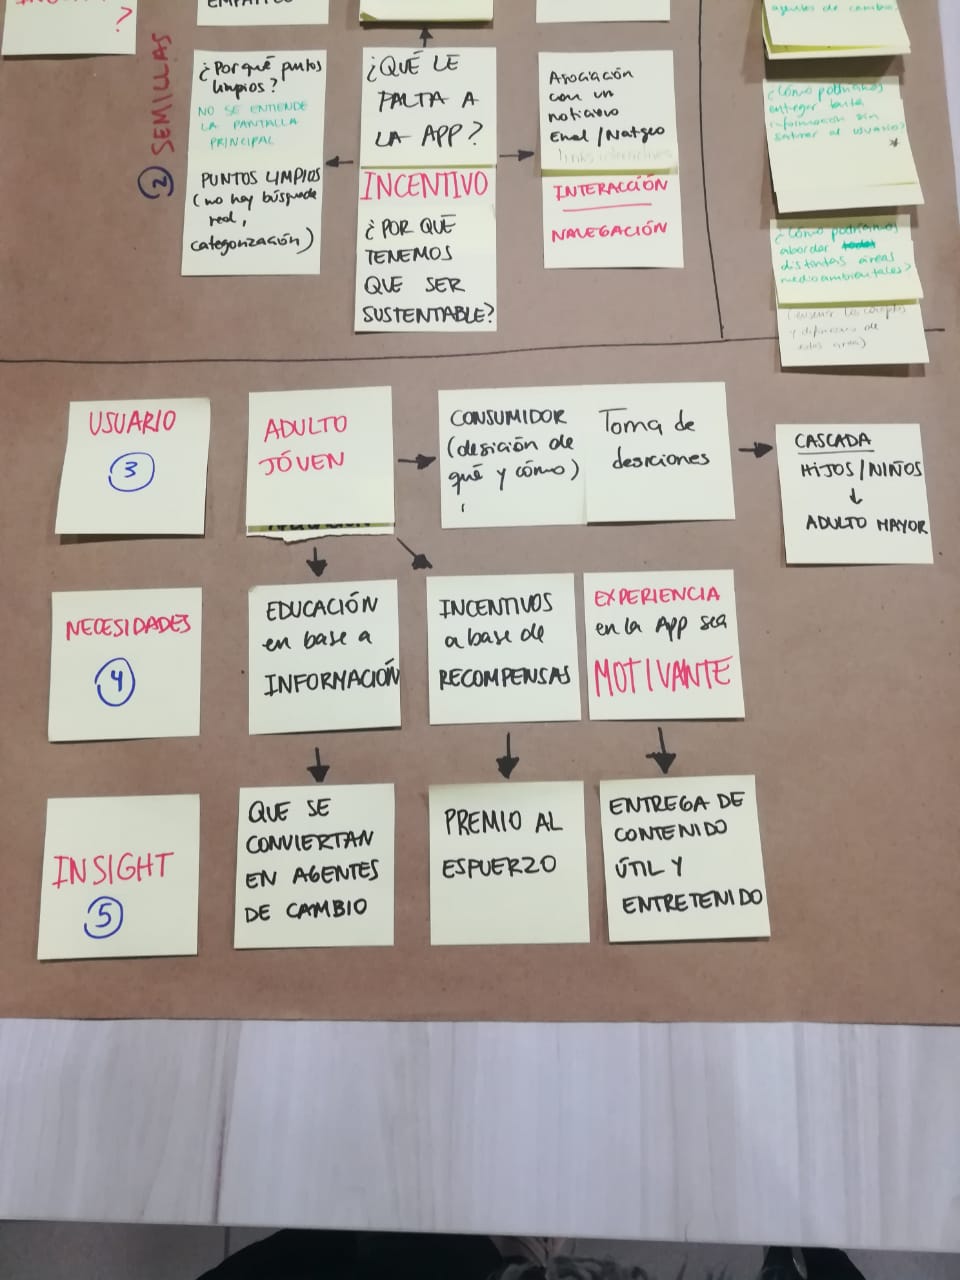 ?
② SEMILLAS
¿Por qué puntos
limpios?
NO SE ENTIENDE
LA PANTALLA
PRINCIPAL
PUNTOS LIMPIOS
(no hay búsqueda
real,
categorización)
¿QUÉ LE
FALTA A
LA APP?
INCENTIVO
¿POR QUÉ
TENEMOS
QUE SER
SUSTENTABLE?
Asociación
con un
noticiero
Enel/Natgeo
links interactivos
INTERACCIÓN
NAVEGACIÓN
agentes de cambio
¿Cómo podríamos
entregar tanta
información sin
saturar al usuario?
*
¿Cómo podríamos
abordar
distintas áreas
medioambientales?
USUARIO
③
ADULTO
JÓVEN
CONSUMIDOR
(desición de
qué y cómo)
Toma de
desiciones
CASCADA
HIJOS/NIÑOS
↓
ADULTO MAYOR
NECESIDADES
④
EDUCACIÓN
en base a
INFORMACIÓN
INCENTIVOS
a base de
RECOMPENSAS
EXPERIENCIA
en la App sea
MOTIVANTE
INSIGHT
⑤
QUE SE
CONVIERTAN
EN AGENTES
DE CAMBIO
PREMIO AL
ESFUERZO
ENTREGA DE
CONTENIDO
ÚTIL Y
ENTRETENIDO